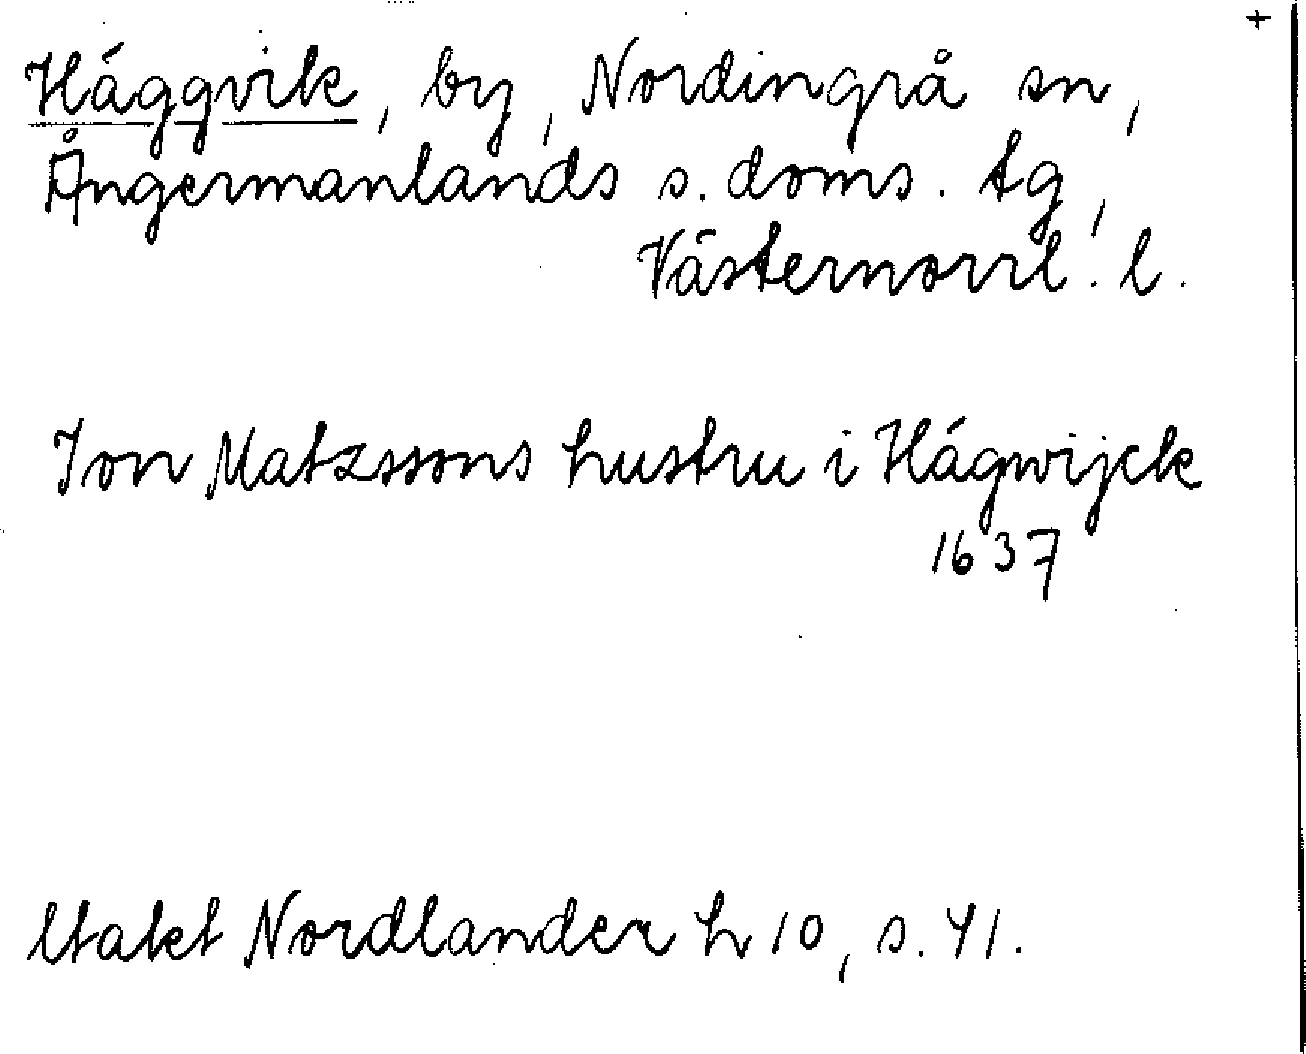 +
Häggvik, by, Nordingrå sn,
Ångermanlands s. doms. tg,
Västernorrl. l.
Jon Matzssons hustru i Hägwijck
1637
Utakt Nordlander h 10, s. 41.